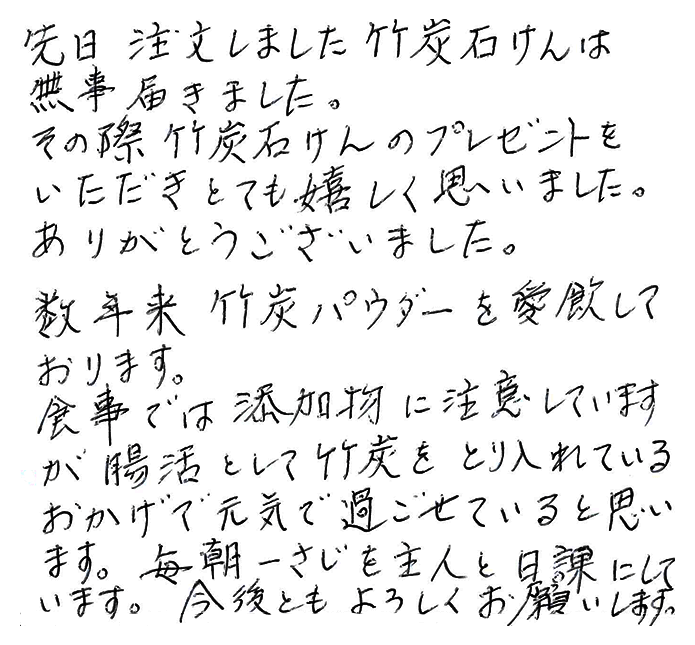 先日 注文しました竹炭石けんは
無事届きました。
その際 竹炭石けんのプレゼントを
いただきとても嬉しく思いました。
ありがとうございました。
数年来 竹炭パウダーを愛飲して
おります。
食事では添加物に注意しています
が腸活として竹炭をとり入れている
おかげで元気で過ごせていると思い
ます。毎朝一さじを主人と日課にして
います。今後ともよろしくお願いします。